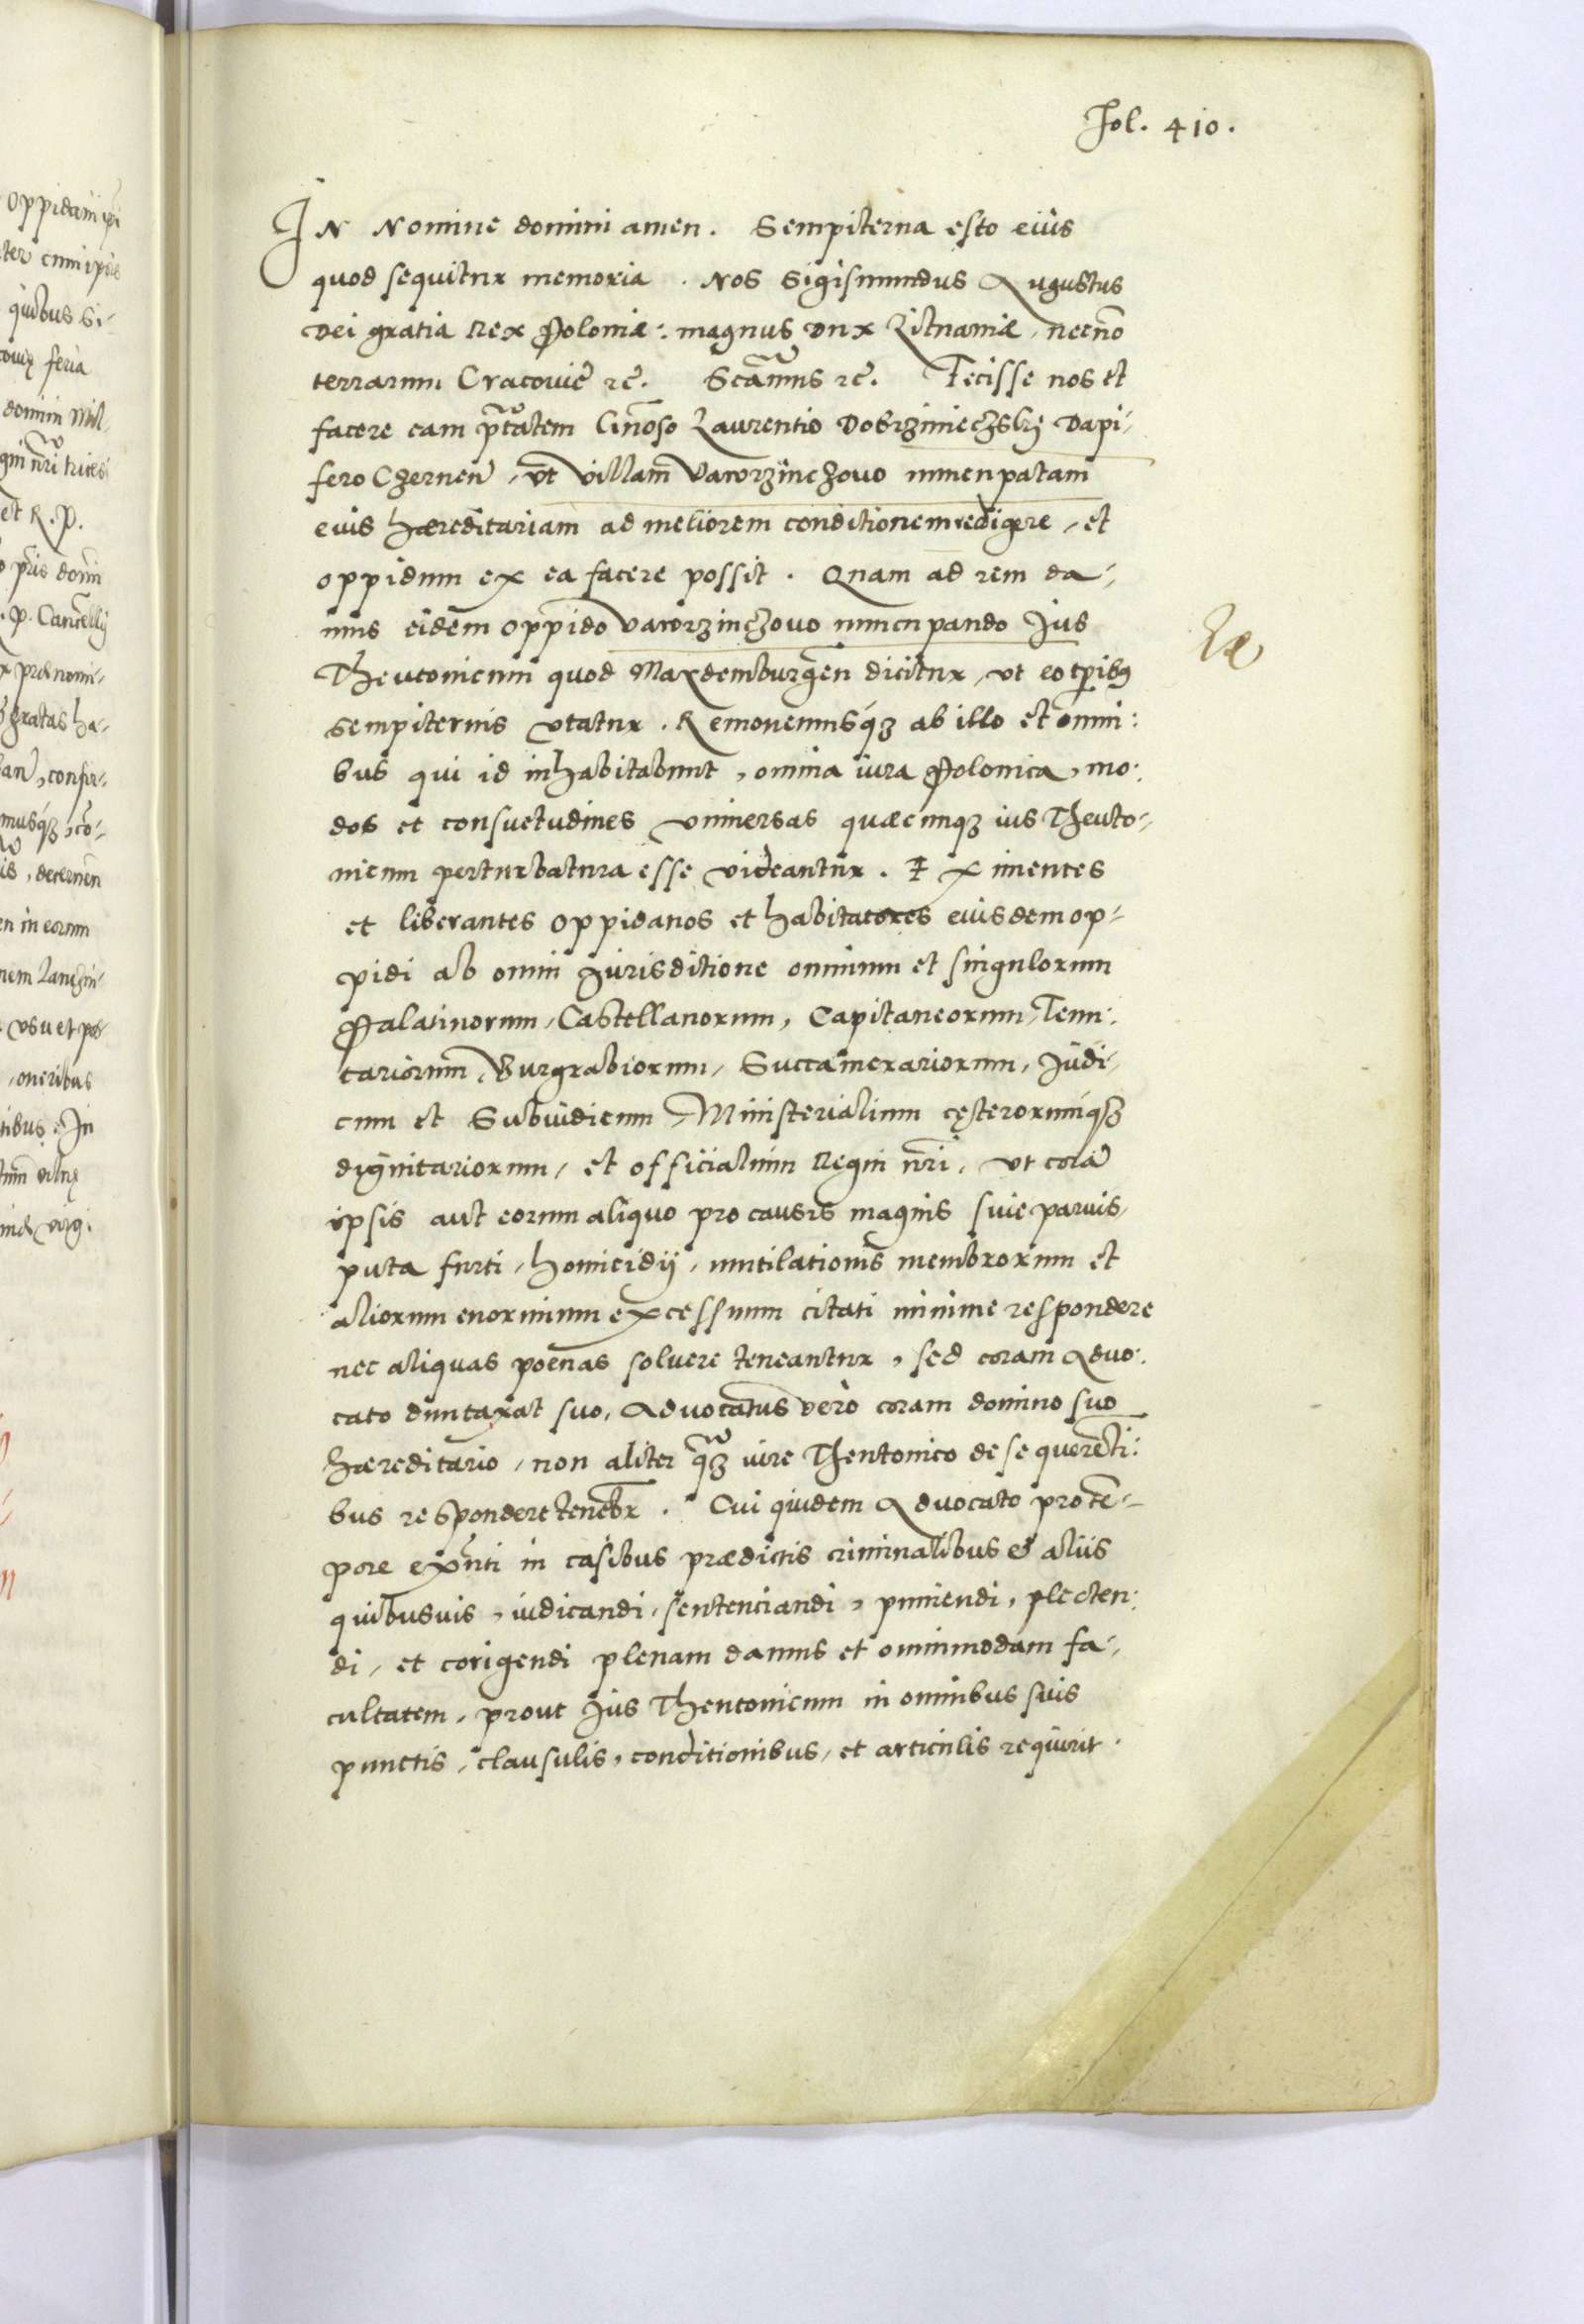 Fol. 410.
In Nomine domini amen. Sempiterna esto eius
quod sequitur memoria. Nos Sigismundus Augustus
Dei gratia Rex Poloniæ: magnus Dux Lituaniæ, necnõ
terrarum Cracovieñ ꝛc̃. Scam̃us ꝛc̃. Fecisse nos et
facere eam pt̃atem Gñoso Laurentio Dobrziniechskÿ Dapi-
fero Czerneñ, ut villam Vaworzinczovo nuncupatam
eius hæreditariam ad meliorem conditionem redigere, et
oppidum ex ea facere possit. Quam ad rem da-
mus eidem oppido Vaworzinczovo nuncupando Jus
Theutonicum quod Maydemburgen̄ dicitur, ut eo tp̃ibꝰ
sempiternis utatur. Removemusq́ꝫ ab illo et omni:
bus qui id inhabitabunt, omnia iura Polonica, mo:
dos et consuetudines universas quæcunqꝫ ius Theuto-
nicum perturbatura esse videantur. Eximentes
et liberantes oppidanos et habitatores eiusdem op-
pidi ab omni Jurisditione omnium et singulorum
Palatinorum, Castellanorum, Capitaneorum, Tenu:
tariorum, Burgrabiorum, Succamerariorum, Judi-
cum et Subiudicum, Ministerialium cęterorumq́ꝫ
dignitariorum, et officialium Regni nr̃i, ut corã
ipsis aut eorum aliquo pro causis magnis sive parvis,
puta furti, homicidij, mutilationis membrorum et
aliorum enormium excessuum citati minime respondere
nec aliquas poenas solvere teneantur, sed coram Advo:
cato duntaxat suo, Advocatus verò coram domino suo
hæreditario, non aliter q̃ꝫ iure Theutonico de se querenti:
bus respondere teneb̃r. Cui quidem Advocato pro tẽ-
pore exñti in casibus prædictis criminalibus & aliis
quibusvis, iudicandi, sentenciandi, puniendi, plecten:
di, et corigendi plenam damus et omnimodam fa-
cultatem, prout Jus Theutonicum in omnibus suis
punctis, clausulis, conditionibus, et articulis requirit.